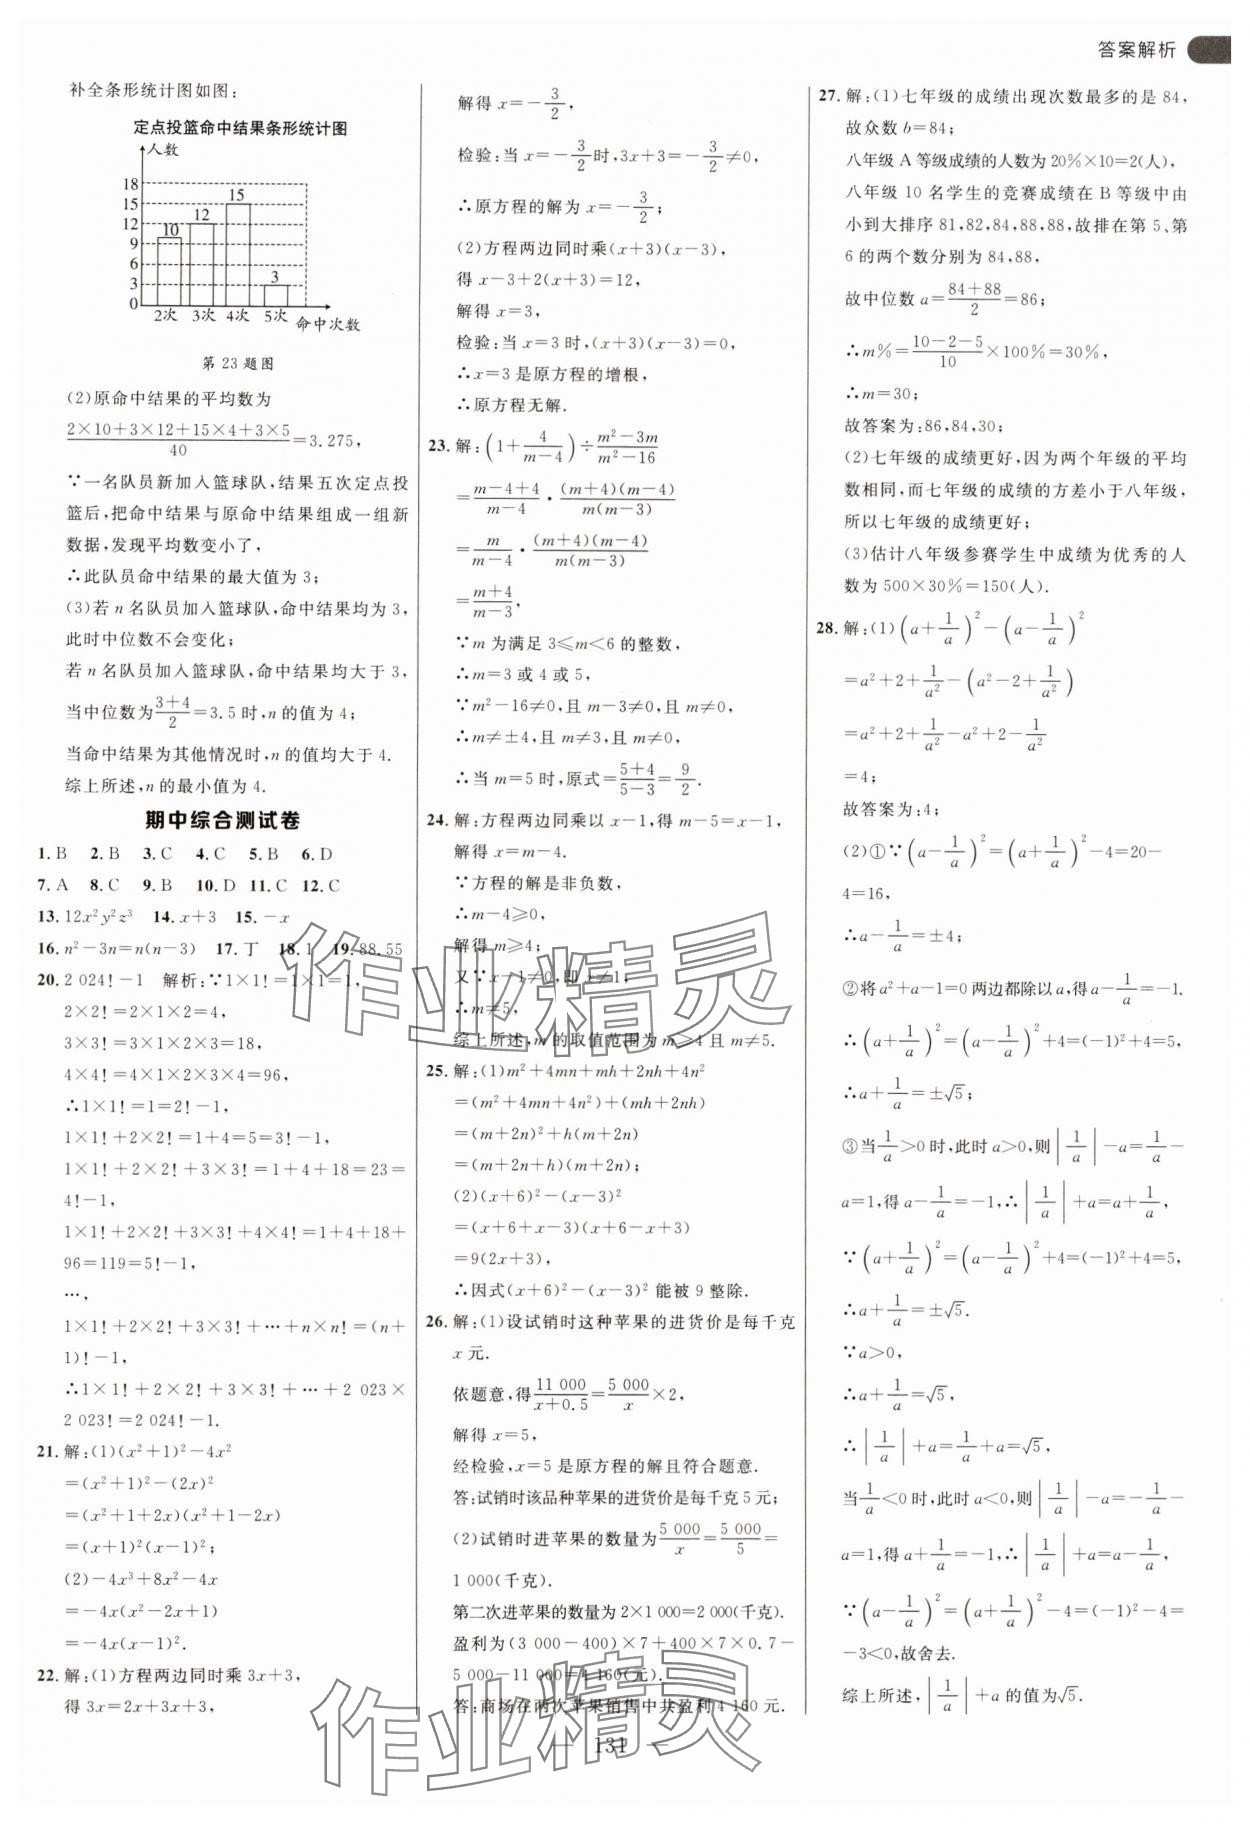 答案解析
补全条形统计图如图:
定点投篮命中结果条形统计图
人数
18
15
12
9
6
3
0
10
12
15
3
2次 3次 4次 5次 命中次数
第23题图
(2)原命中结果的平均数为
(2×10+3×12+15×4+3×5)/40=3.275,
∵一名队员新加入篮球队,结果五次定点投
篮后,把命中结果与原命中结果组成一组新
数据,发现平均数变小了,
∴此队员命中结果的最大值为3;
(3)若n名队员加入篮球队,命中结果均为3,
此时中位数不会变化;
若n名队员加入篮球队,命中结果均大于3,
当中位数为(3+4)/2=3.5时,n的值为4;
当命中结果为其他情况时,n的值均大于4.
综上所述,n的最小值为4.
期中综合测试卷
1.B 2.B 3.C 4.C 5.B 6.D
7.A 8.C 9.B 10.D 11.C 12.C
13.12x²y²z³ 14.x+3 15.-x
16.n²-3n=n(n-3) 17.丁 18.1 19.88.55
20.2 024!-1 解析:∵1×1!=1×1=1,
2×2!=2×1×2=4,
3×3!=3×1×2×3=18,
4×4!=4×1×2×3×4=96,
∴1×1!=1=2!-1,
1×1!+2×2!=1+4=5=3!-1,
1×1!+2×2!+3×3!=1+4+18=23=
4!-1,
1×1!+2×2!+3×3!+4×4!=1+4+18+
96=119=5!-1,
…,
1×1!+2×2!+3×3!+…+n×n!=(n+
1)!-1,
∴1×1!+2×2!+3×3!+…+2 023×
2 023!=2 024!-1.
21.解:(1)(x²+1)²-4x²
=(x²+1)²-(2x)²
=(x²+1+2x)(x²+1-2x)
=(x+1)²(x-1)²;
(2)-4x³+8x²-4x
=-4x(x²-2x+1)
=-4x(x-1)².
22.解:(1)方程两边同时乘3x+3,
得3x=2x+3x+3,
解得x=-3/2,
检验:当x=-3/2时,3x+3=-3/2≠0,
∴原方程的解为x=-3/2;
(2)方程两边同时乘(x+3)(x-3),
得x-3+2(x+3)=12,
解得x=3,
检验:当x=3时,(x+3)(x-3)=0,
∴x=3是原方程的增根,
∴原方程无解.
23.解:(1+4/(m-4))÷(m²-3m)/(m²-16)
=(m-4+4)/(m-4)·(m+4)(m-4)/m(m-3)
=m/(m-4)·(m+4)(m-4)/m(m-3)
=(m+4)/(m-3),
∵m为满足3≤m<6的整数,
∴m=3或4或5,
∵m²-16≠0,且m-3≠0,且m≠0,
∴m≠±4,且m≠3,且m≠0,
∴当m=5时,原式=(5+4)/(5-3)=9/2.
24.解:方程两边同乘以x-1,得m-5=x-1,
解得x=m-4.
∵方程的解是非负数,
∴m-4≥0,
解得m≥4;
又∵x-1≠0,即x≠1,
∴m≠5,
综上所述,m的取值范围为m≥4且m≠5.
25.解:(1)m²+4mn+mh+2nh+4n²
=(m²+4mn+4n²)+(mh+2nh)
=(m+2n)²+h(m+2n)
=(m+2n+h)(m+2n);
(2)(x+6)²-(x-3)²
=(x+6+x-3)(x+6-x+3)
=9(2x+3),
∴因式(x+6)²-(x-3)²能被9整除.
26.解:(1)设试销时这种苹果的进货价是每千克
x元.
依题意,得11 000/(x+0.5)=5 000/x×2,
解得x=5,
经检验,x=5是原方程的解且符合题意.
答:试销时该品种苹果的进货价是每千克5元;
(2)试销时进苹果的数量为5 000/x=5 000/5=
1 000(千克).
第二次进苹果的数量为2×1 000=2 000(千克).
盈利为(3 000-400)×7+400×7×0.7-
5 000-11 000=4 160(元).
答:商场在两次苹果销售中共盈利4 160元.
27.解:(1)七年级的成绩出现次数最多的是84,
故众数b=84;
八年级A等级成绩的人数为20%×10=2(人),
八年级10名学生的竞赛成绩在B等级中由
小到大排序81,82,84,88,88,故排在第5、第
6的两个数分别为84,88,
故中位数a=(84+88)/2=86;
∴m%=(10-2-5)/10×100%=30%,
∴m=30;
故答案为:86,84,30;
(2)七年级的成绩更好,因为两个年级的平均
数相同,而七年级的成绩的方差小于八年级,
所以七年级的成绩更好;
(3)估计八年级参赛学生中成绩为优秀的人
数为500×30%=150(人).
28.解:(1)(a+1/a)²-(a-1/a)²
=a²+2+1/a²-(a²-2+1/a²)
=a²+2+1/a²-a²+2-1/a²
=4;
故答案为:4;
(2)①∵(a-1/a)²=(a+1/a)²-4=20-
4=16,
∴a-1/a=±4;
②将a²+a-1=0两边都除以a,得a-1/a=-1.
∴(a+1/a)²=(a-1/a)²+4=(-1)²+4=5,
∴a+1/a=±√5;
③当1/a>0时,此时a>0,则|1/a|-a=1/a-
a=1,得a-1/a=-1,∴|1/a|+a=a+1/a,
∵(a+1/a)²=(a-1/a)²+4=(-1)²+4=5,
∴a+1/a=±√5.
∵a>0,
∴a+1/a=√5,
∴|1/a|+a=1/a+a=√5,
当1/a<0时,此时a<0,则|1/a|-a=-1/a-
a=1,得a+1/a=-1,∴|1/a|+a=a-1/a,
∵(a-1/a)²=(a+1/a)²-4=(-1)²-4=
-3<0,故舍去.
综上所述,|1/a|+a的值为√5.
— 131 —
作业精灵
作业精灵